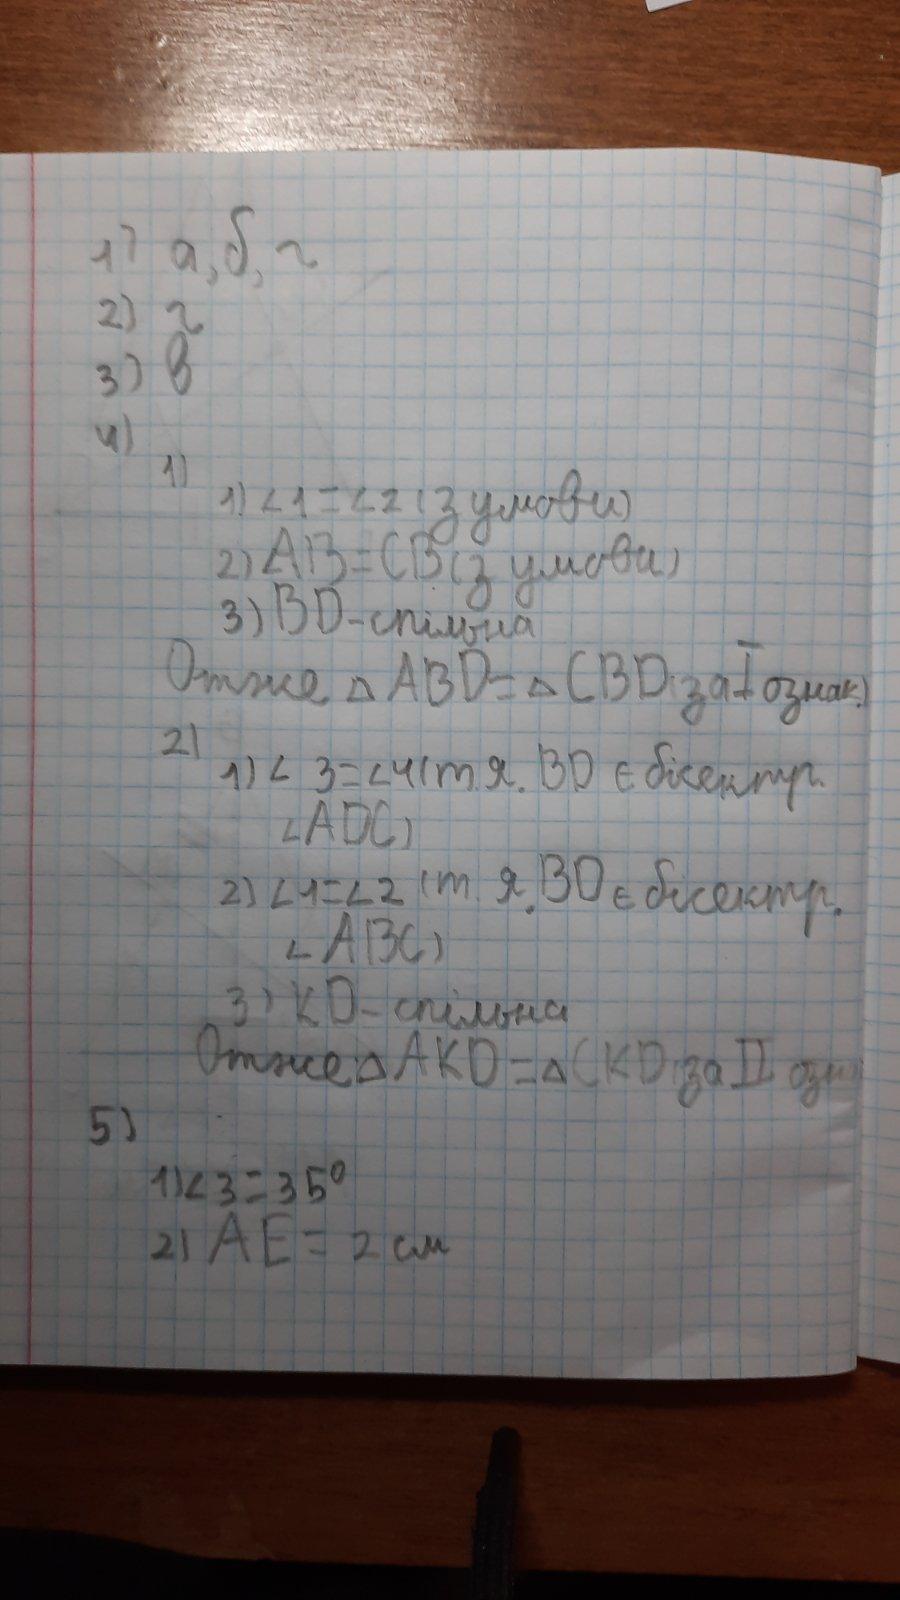 1) а, б, г
2) г
3) в
4)
1)
1) ∠1=∠2 (з умови)
2) AB=CB (з умови)
3) BD-спільна
Отже △ABD=△CBD (за I ознак.)
2)
1) ∠3=∠4 (т.я. BD є бісектр.
∠ADC)
2) ∠1=∠2 (т.я. BD є бісектр.
∠ABC)
3) KD-спільна
Отже △AKD=△CKD (за II озн
5)
1) ∠3=35°
2) AE=2 см